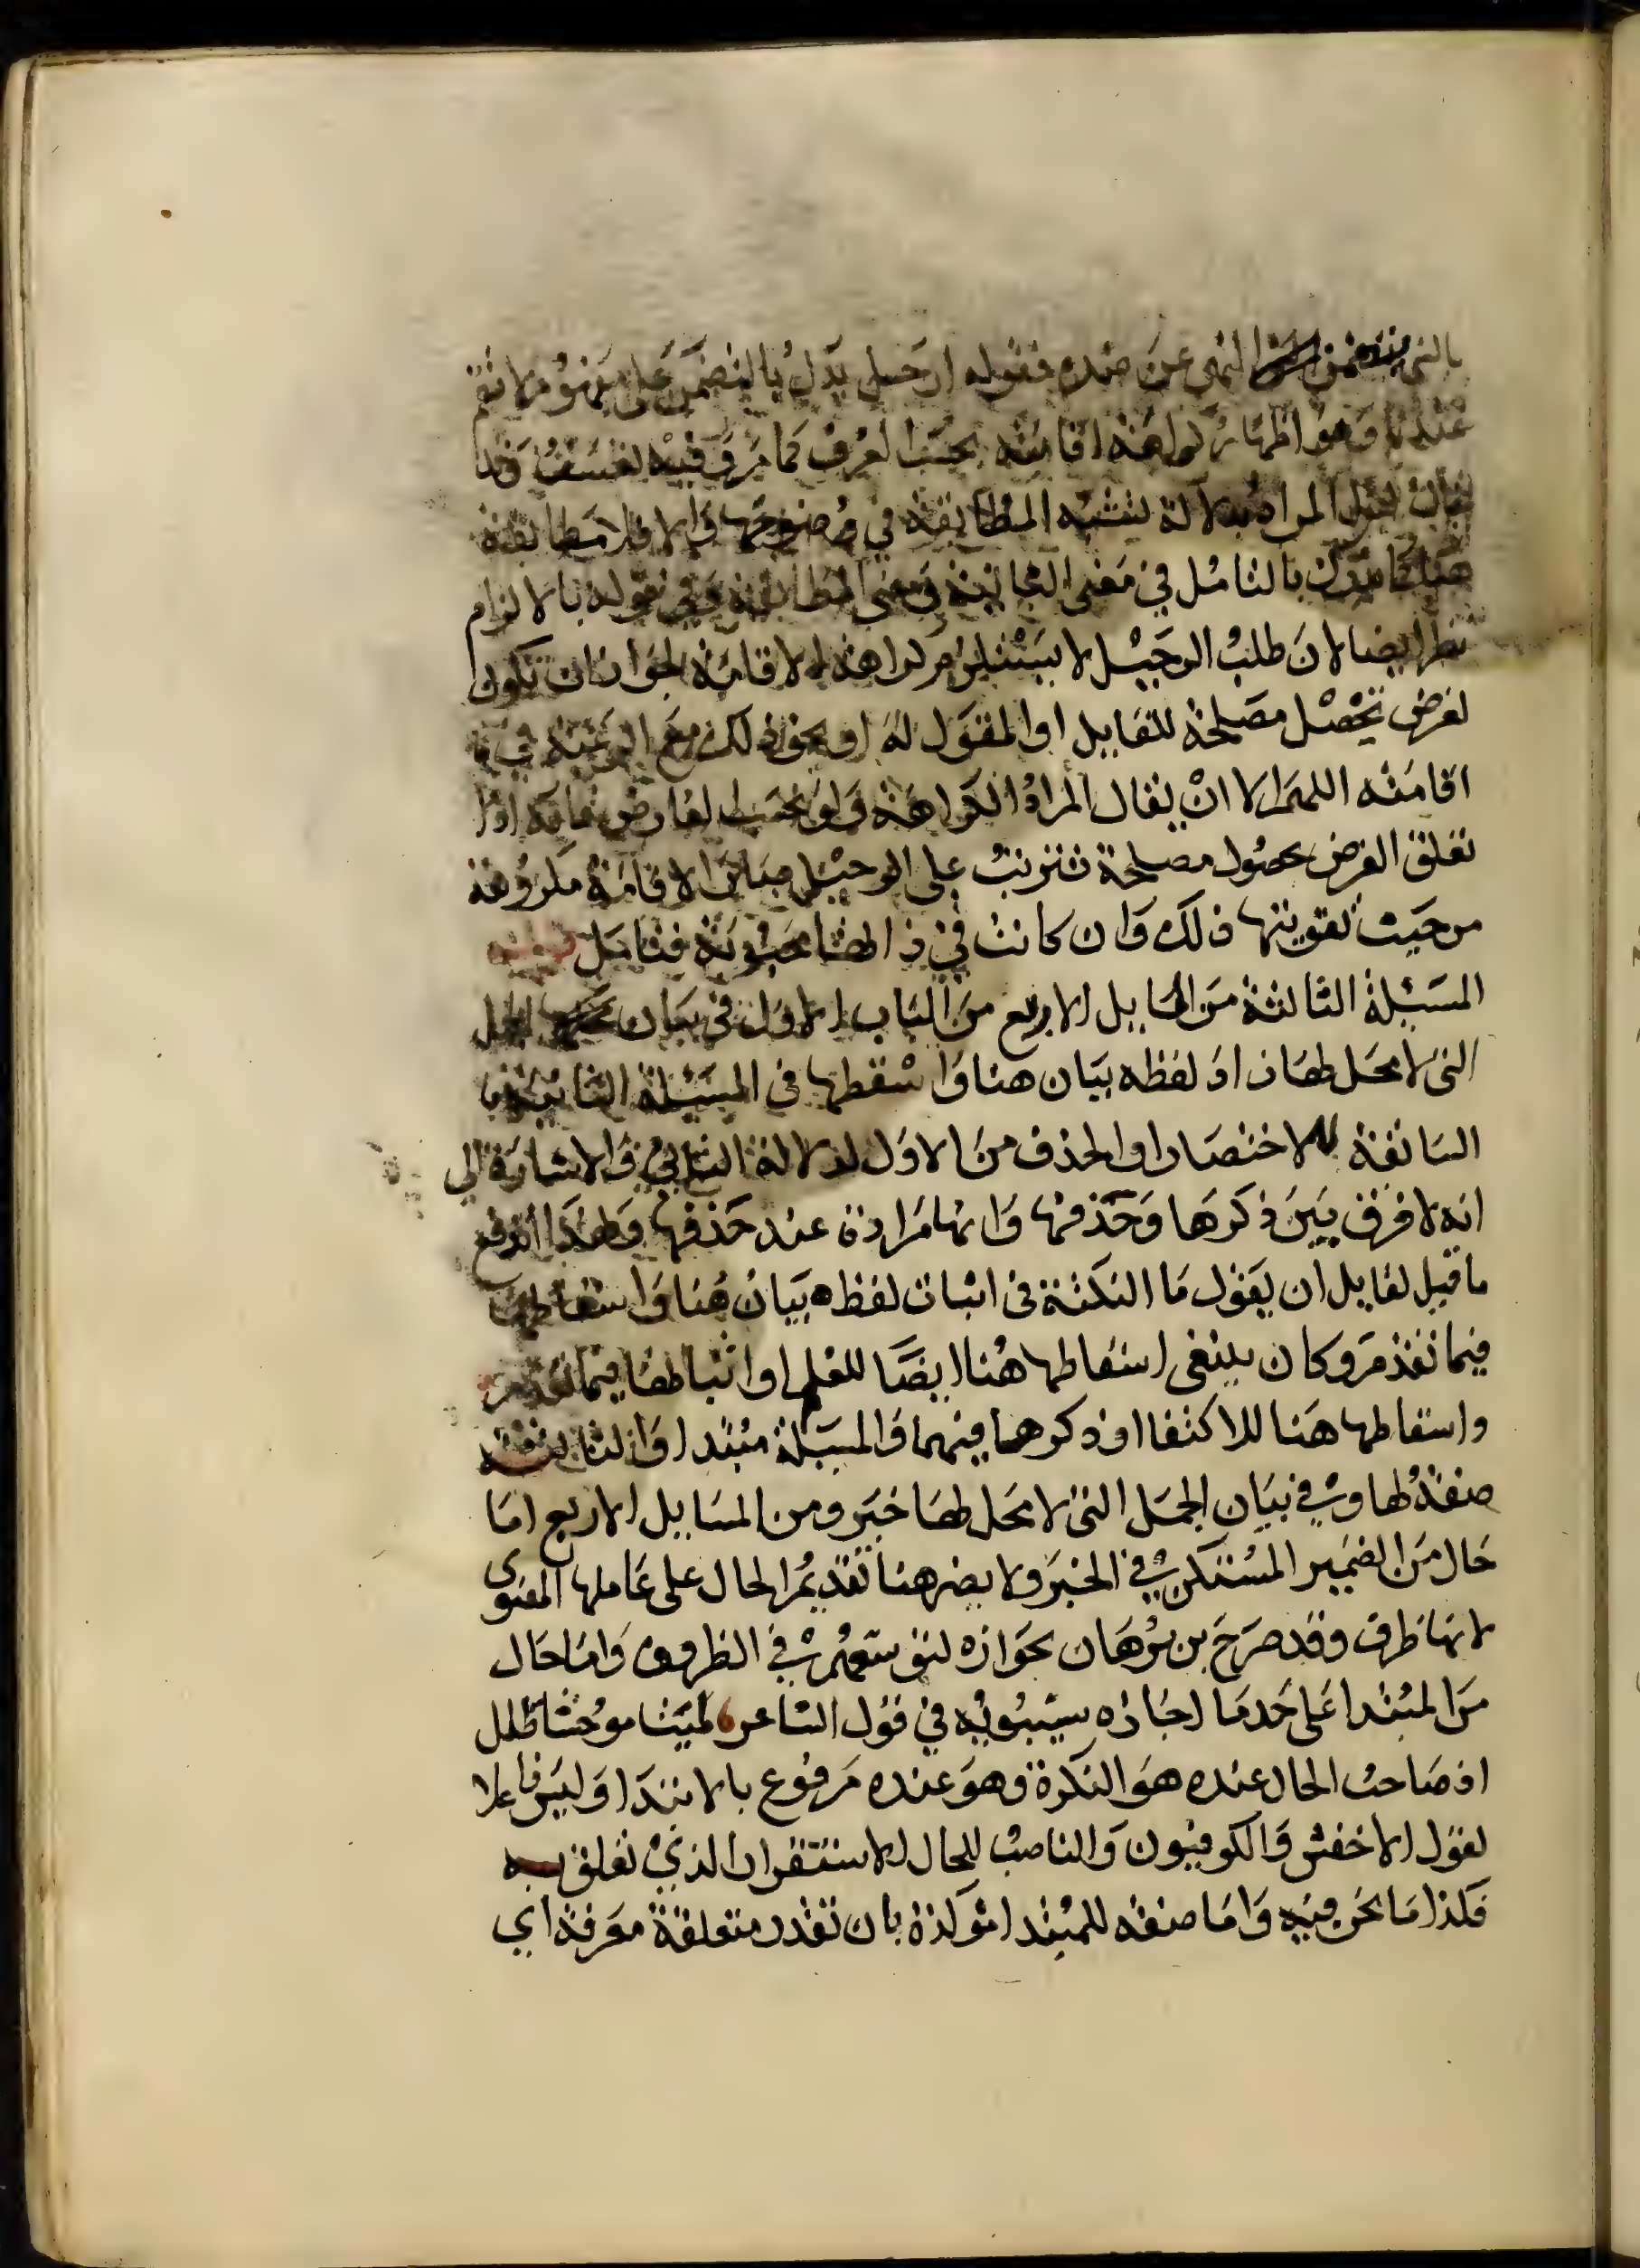 بالشي يتضمن النهى عن ضده فقوله ارحل يدل بالتضمن على مفهوم لا تقم
عندنا وهو اظهار كراهة اقامته بحسب العرف كما مر وفيه تعسف وقد
يقال لعل المراد بدلالة تشبه المطابقة في وضوحها والا فلا مطابقة
هنا كما بالتامل في معنى ومعنى المطابقة وفي قوله بالالزام
نظر ايضا لان طلب الرحيل لا يستلزم كراهة الاقامة لجواز ان تكون
لغرض تحصل مصلحة للقايل او المقول له او نحو ذلك مع الرغبة في
اقامته اللهم الا ان يقال المراد الكراهة ولو بحسب العارض فانه اذا
تعلق الغرض بحصول مصلحة تترتب على الرحيل صارت الاقامة مكروهة
من حيث تفويتها ذلك وان كانت في ذاتها محبوبة فتامل
المسئلة الثالثة من المسايل الاربع من الباب الاول في بيان الجمل
التى لا محل لها زاد لفظه بيان هنا واسقطها فى المسئلة الثانية
السابقة للاختصار او الحذف من الاول لدلالة الثاني والاشارة الى
انه لا فرق بين ذكرها وحذفها وانها مرادة عند حذفها وبهذا اندفع
ما قيل لقايل ان يقول ما النكتة فى اثبات لفظه بيان هنا واسقاطها
فيما تقدم وكان ينبغى اسقاطها هنا ايضا للعلم او اثباتها فيما تقدم
واسقاطها هنا للاكتفا او ذكرها فيهما والمسئلة مبتدا والثالثة
صفة لها وفي بيان الجمل التى لا محل لها خبر ومن المسايل الاربع اما
حال من الضمير المستكن في الخبر ولا يضر هنا تقديم الحال على عاملها المعنوى
لانها ظرف وقد صرح بن برهان بجوازه لتوسعهم في الظروف واما حال
من المبتدا على حد ما اجازه سيبويه في قول الشاعر لمية موحشا طلل
اذ صاحب الحال عنده هو النكرة وهو عنده مرفوع بالابتدا وليس فاعلا
لقول الاخفش والكوفيون والناصب للحال الاستقرار الذي تعلق به
فكذا ما نحن فيه واما صفة للمبتدا مؤكدة بان تقدر متعلقة معرفة اي